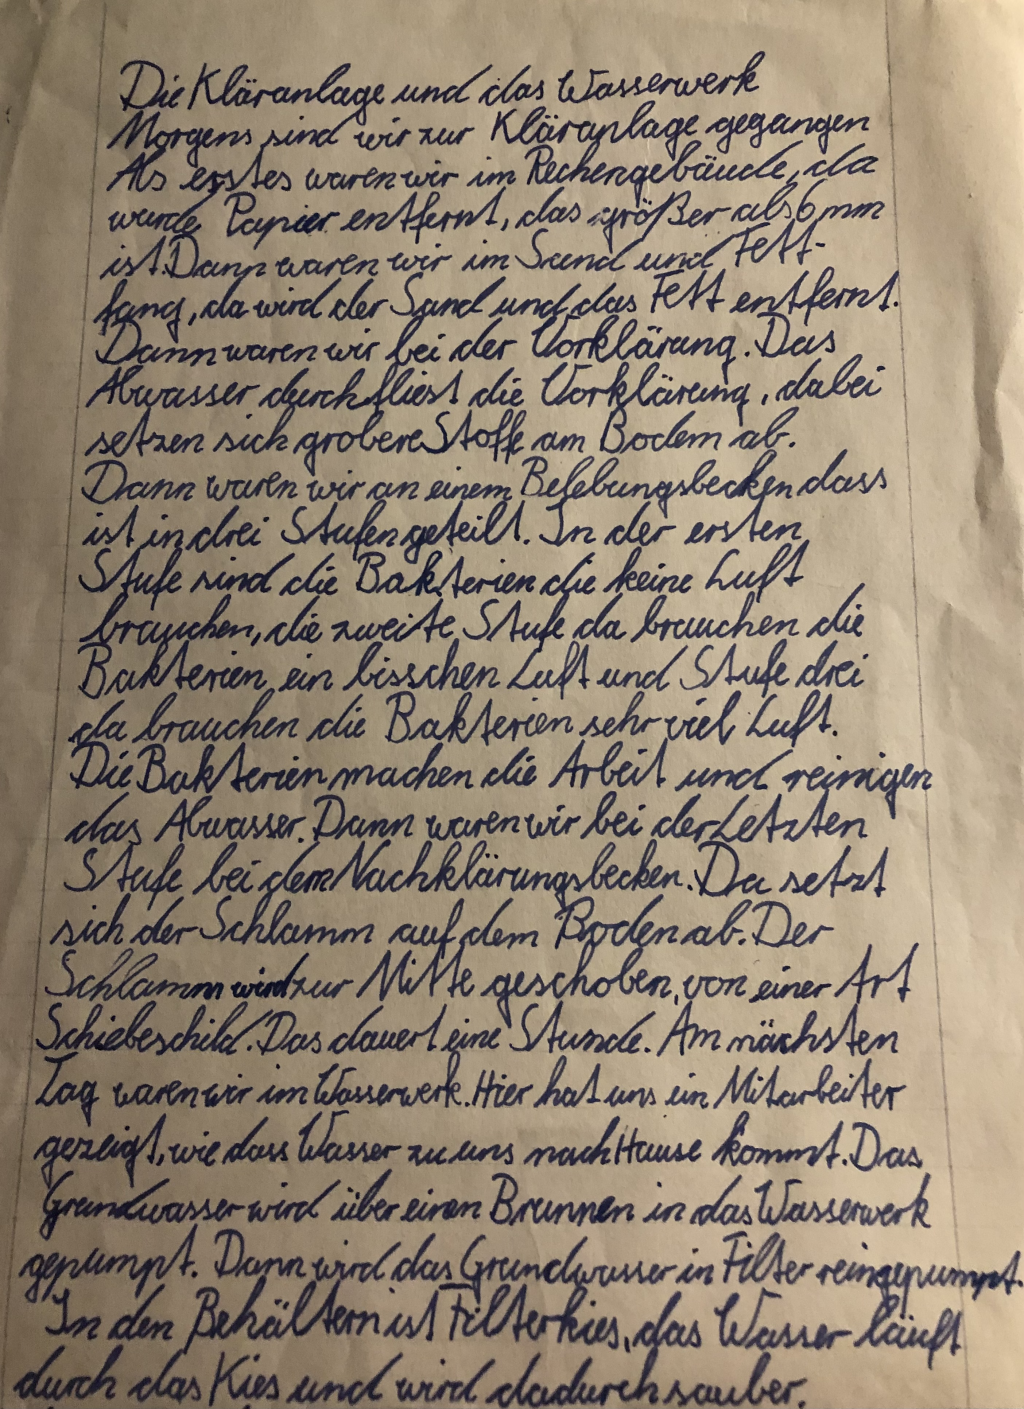 Die Kläranlage und das Wasserwerk
Morgens sind wir zur Kläranlage gegangen
Als erstes waren wir im Rechengebäude, da
wurde Papier entfernt, das größer als 6 mm
ist. Dann waren wir im Sand und Fett-
fang, da wird der Sand und das Fett entfernt.
Dann waren wir bei der Vorklärung. Das
Abwasser durchfliest die Vorklärung, dabei
setzen sich grobere Stoffe am Bodem ab.
Dann waren wir an einem Belebungsbecken dass
ist in drei Stufen geteilt. In der ersten
Stufe sind die Bakterien die keine Luft
brauchen, die zweite Stufe da brauchen die
Bakterien ein bisschen Luft und Stufe drei
da brauchen die Bakterien sehr viel Luft.
Die Bakterien machen die Arbeit und reinigen
das Abwasser. Dann waren wir bei der Letzten
Stufe bei dem Nachklärungsbecken. Da setzt
sich der Schlamm auf dem Boden ab. Der
Schlamm wird zur Mitte geschoben, von einer Art
Schiebeschild. Das dauert eine Stunde. Am nächsten
Tag waren wir im Wasserwerk. Hier hat uns ein Mitarbeiter
gezeigt, wie dass Wasser zu uns nach Hause kommt. Das
Grundwasser wird über einen Brunnen in das Wasserwerk
gepumpt. Dann wird das Grundwasser in Filter reingepumpt.
In den Behältern ist Filterkies, das Wasser läuft
durch das Kies und wird dadurch sauber.